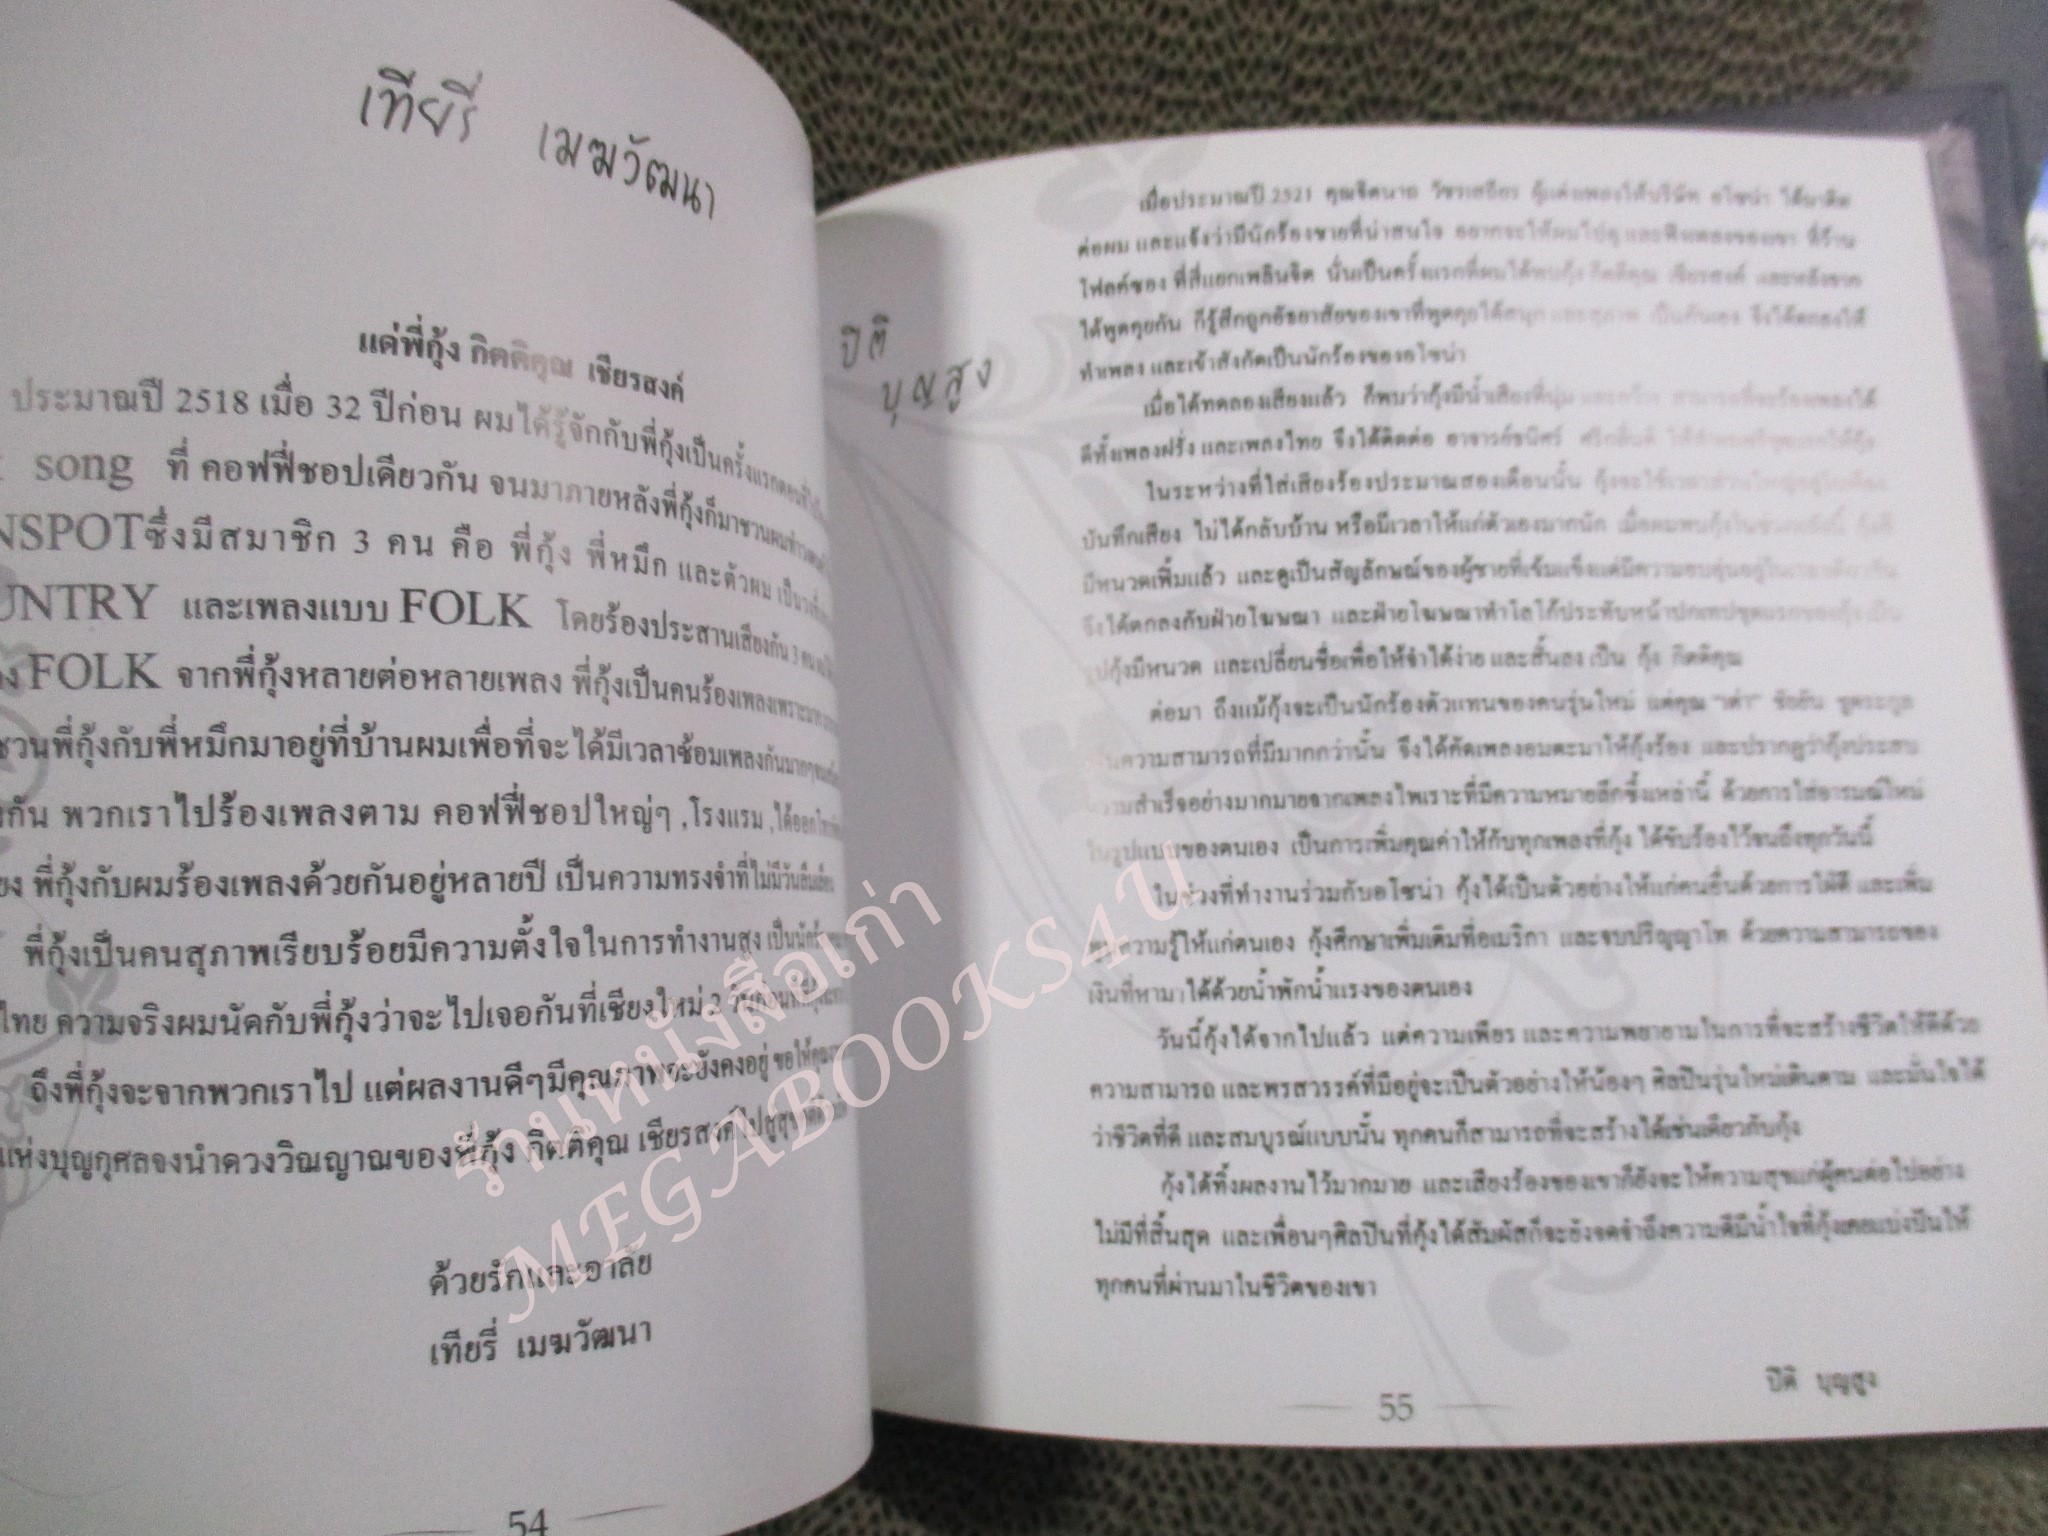 เทียรี่ เมฆวัฒนา
แด่พี่กุ้ง กิตติคุณ เชียรสงค์
ประมาณปี 2518 เมื่อ 32 ปีก่อน ผมได้รู้จักกับพี่กุ้งเป็นครั้งแรกตอนที่
song ที่ คอฟฟี่ชอปเดียวกัน จนมาภายหลังพี่กุ้งก็มาชวนผม
NSPOTซึ่งมีสมาชิก 3 คน คือ พี่กุ้ง พี่หมึก และตัวผม เป็น
UNTRY และเพลงแบบ FOLK โดยร้องประสานเสียงกัน 3 คน
FOLK จากพี่กุ้งหลายต่อหลายเพลง พี่กุ้งเป็นคนร้องเพลงเพราะมาก
ชวนพี่กุ้งกับพี่หมึกมาอยู่ที่บ้านผมเพื่อที่จะได้มีเวลาซ้อมเพลงกันมากๆ
งกัน พวกเราไปร้องเพลงตาม คอฟฟี่ชอปใหญ่ๆ ,โรงแรม ,ได้ออก
ยง พี่กุ้งกับผมร้องเพลงด้วยกันอยู่หลายปี เป็นความทรงจำที่ไม่มีวันลืมเลือน
พี่กุ้งเป็นคนสุภาพเรียบร้อยมีความตั้งใจในการทำงานสูง เป็น
ไทย ความจริงผมนัดกับพี่กุ้งว่าจะไปเจอกันที่เชียงใหม่ 2 วันก่อนที่
ถึงพี่กุ้งจะจากพวกเราไป แต่ผลงานดีๆมีคุณภาพจะยังคงอยู่ ขอให้
แห่งบุญกุศลจงนำดวงวิณญาณของพี่กุ้ง กิตติคุณ เชียรสงค์ ไปสู่
ด้วยรักและอาลัย
เทียรี่ เมฆวัฒนา
54
ปิติ
บุญสูง
เมื่อประมาณปี 2521 คุณจิตนาถ วัชรเสถียร ผู้แต่งเพลงให้บริษัท อโซน่า ได้มาติด
ต่อผม และแจ้งว่ามีนักร้องชายที่น่าสนใจ อยากจะให้ผมไปดู และฟังเพลงของเขา ที่ร้าน
โฟลค์ซอง ที่สี่แยกเพลินจิต นั่นเป็นครั้งแรกที่ผมได้พบกุ้ง กิตติคุณ เชียรสงค์ และหลังจาก
ได้พูดคุยกัน ก็รู้สึกถูกอัธยาศัยของเขาที่พูดคุยได้สนุก และสุภาพ เป็นกันเอง จึงได้ตกลงให้
ทำเพลง และเข้าสังกัดเป็นนักร้องของอโซน่า
เมื่อได้ทดลองเสียงแล้ว ก็พบว่ากุ้งมีน้ำเสียงที่นุ่ม และกว้าง สามารถที่จะร้องเพลงได้
ดีทั้งเพลงฝรั่ง และเพลงไทย จึงได้ติดต่อ อาจารย์ธนิศร์ ศรีกลิ่นดี
ในระหว่างที่ใส่เสียงร้องประมาณสองเดือนนั้น กุ้งจะใช้เวลาส่วนใหญ่อยู่ในห้อง
บันทึกเสียง ไม่ได้กลับบ้าน หรือมีเวลาให้แก่ตัวเองมากนัก เมื่อผมพบกุ้งในช่วงหลังนี้ กุ้งก็
มีหนวดเฟิ้มแล้ว และดูเป็นสัญลักษณ์ของผู้ชายที่เข้มแข็งแต่มีความอบอุ่นอยู่ในเวลาเดียวกัน
จึงได้ตกลงกับฝ่ายโฆษณา และฝ่ายโฆษณาทำโลโก้ประทับหน้าปกเทปชุดแรกของกุ้ง เป็น
รูปกุ้งมีหนวด และเปลี่ยนชื่อเพื่อให้จำได้ง่าย และสั้นลง เป็น กุ้ง กิตติคุณ
ต่อมา ถึงแม้กุ้งจะเป็นนักร้องตัวแทนของคนรุ่นใหม่ แต่คุณ "เต๋า"
เห็นความสามารถที่มีมากกว่านั้น จึงได้คัดเพลงอมตะมาให้กุ้งร้อง และปรากฏว่ากุ้งประสบ
ความสำเร็จอย่างมากมายจากเพลงไพเราะที่มีความหมายลึกซึ้งเหล่านี้ ด้วยการใส่อารมณ์ใหม่
ในรูปแบบของตนเอง เป็นการเพิ่มคุณค่าให้กับทุกเพลงที่กุ้ง ได้ขับร้องไว้จนถึงทุกวันนี้
ในช่วงที่ทำงานร่วมกับอโซน่า กุ้งได้เป็นตัวอย่างให้แก่คนอื่นด้วยการใฝ่ดี และเพิ่ม
พูนความรู้ให้แก่ตนเอง กุ้งศึกษาเพิ่มเติมที่อเมริกา และจบปริญญาโท ด้วยความสามารถของ
เงินที่หามาได้ด้วยน้ำพักน้ำแรงของตนเอง
วันนี้กุ้งได้จากไปแล้ว แต่ความเพียร และความพยายามในการที่จะสร้างชีวิตให้ดีด้วย
ความสามารถ และพรสวรรค์ที่มีอยู่จะเป็นตัวอย่างให้น้องๆ ศิลปินรุ่นใหม่เดินตาม และมั่นใจได้
ว่าชีวิตที่ดี และสมบูรณ์แบบนั้น ทุกคนก็สามารถที่จะสร้างได้เช่นเดียวกับกุ้ง
กุ้งได้ทิ้งผลงานไว้มากมาย และเสียงร้องของเขาก็ยังจะให้ความสุขแก่ผู้คนต่อไปอย่าง
ไม่มีที่สิ้นสุด และเพื่อนๆศิลปินที่กุ้งได้สัมผัสก็จะยังจดจำถึงความดีมีน้ำใจที่กุ้งเคยแบ่งปันให้
ทุกคนที่ผ่านมาในชีวิตของเขา
ปิติ บุญสูง
55
ร้านหนังสือเก่า
MEGABOOKS4U